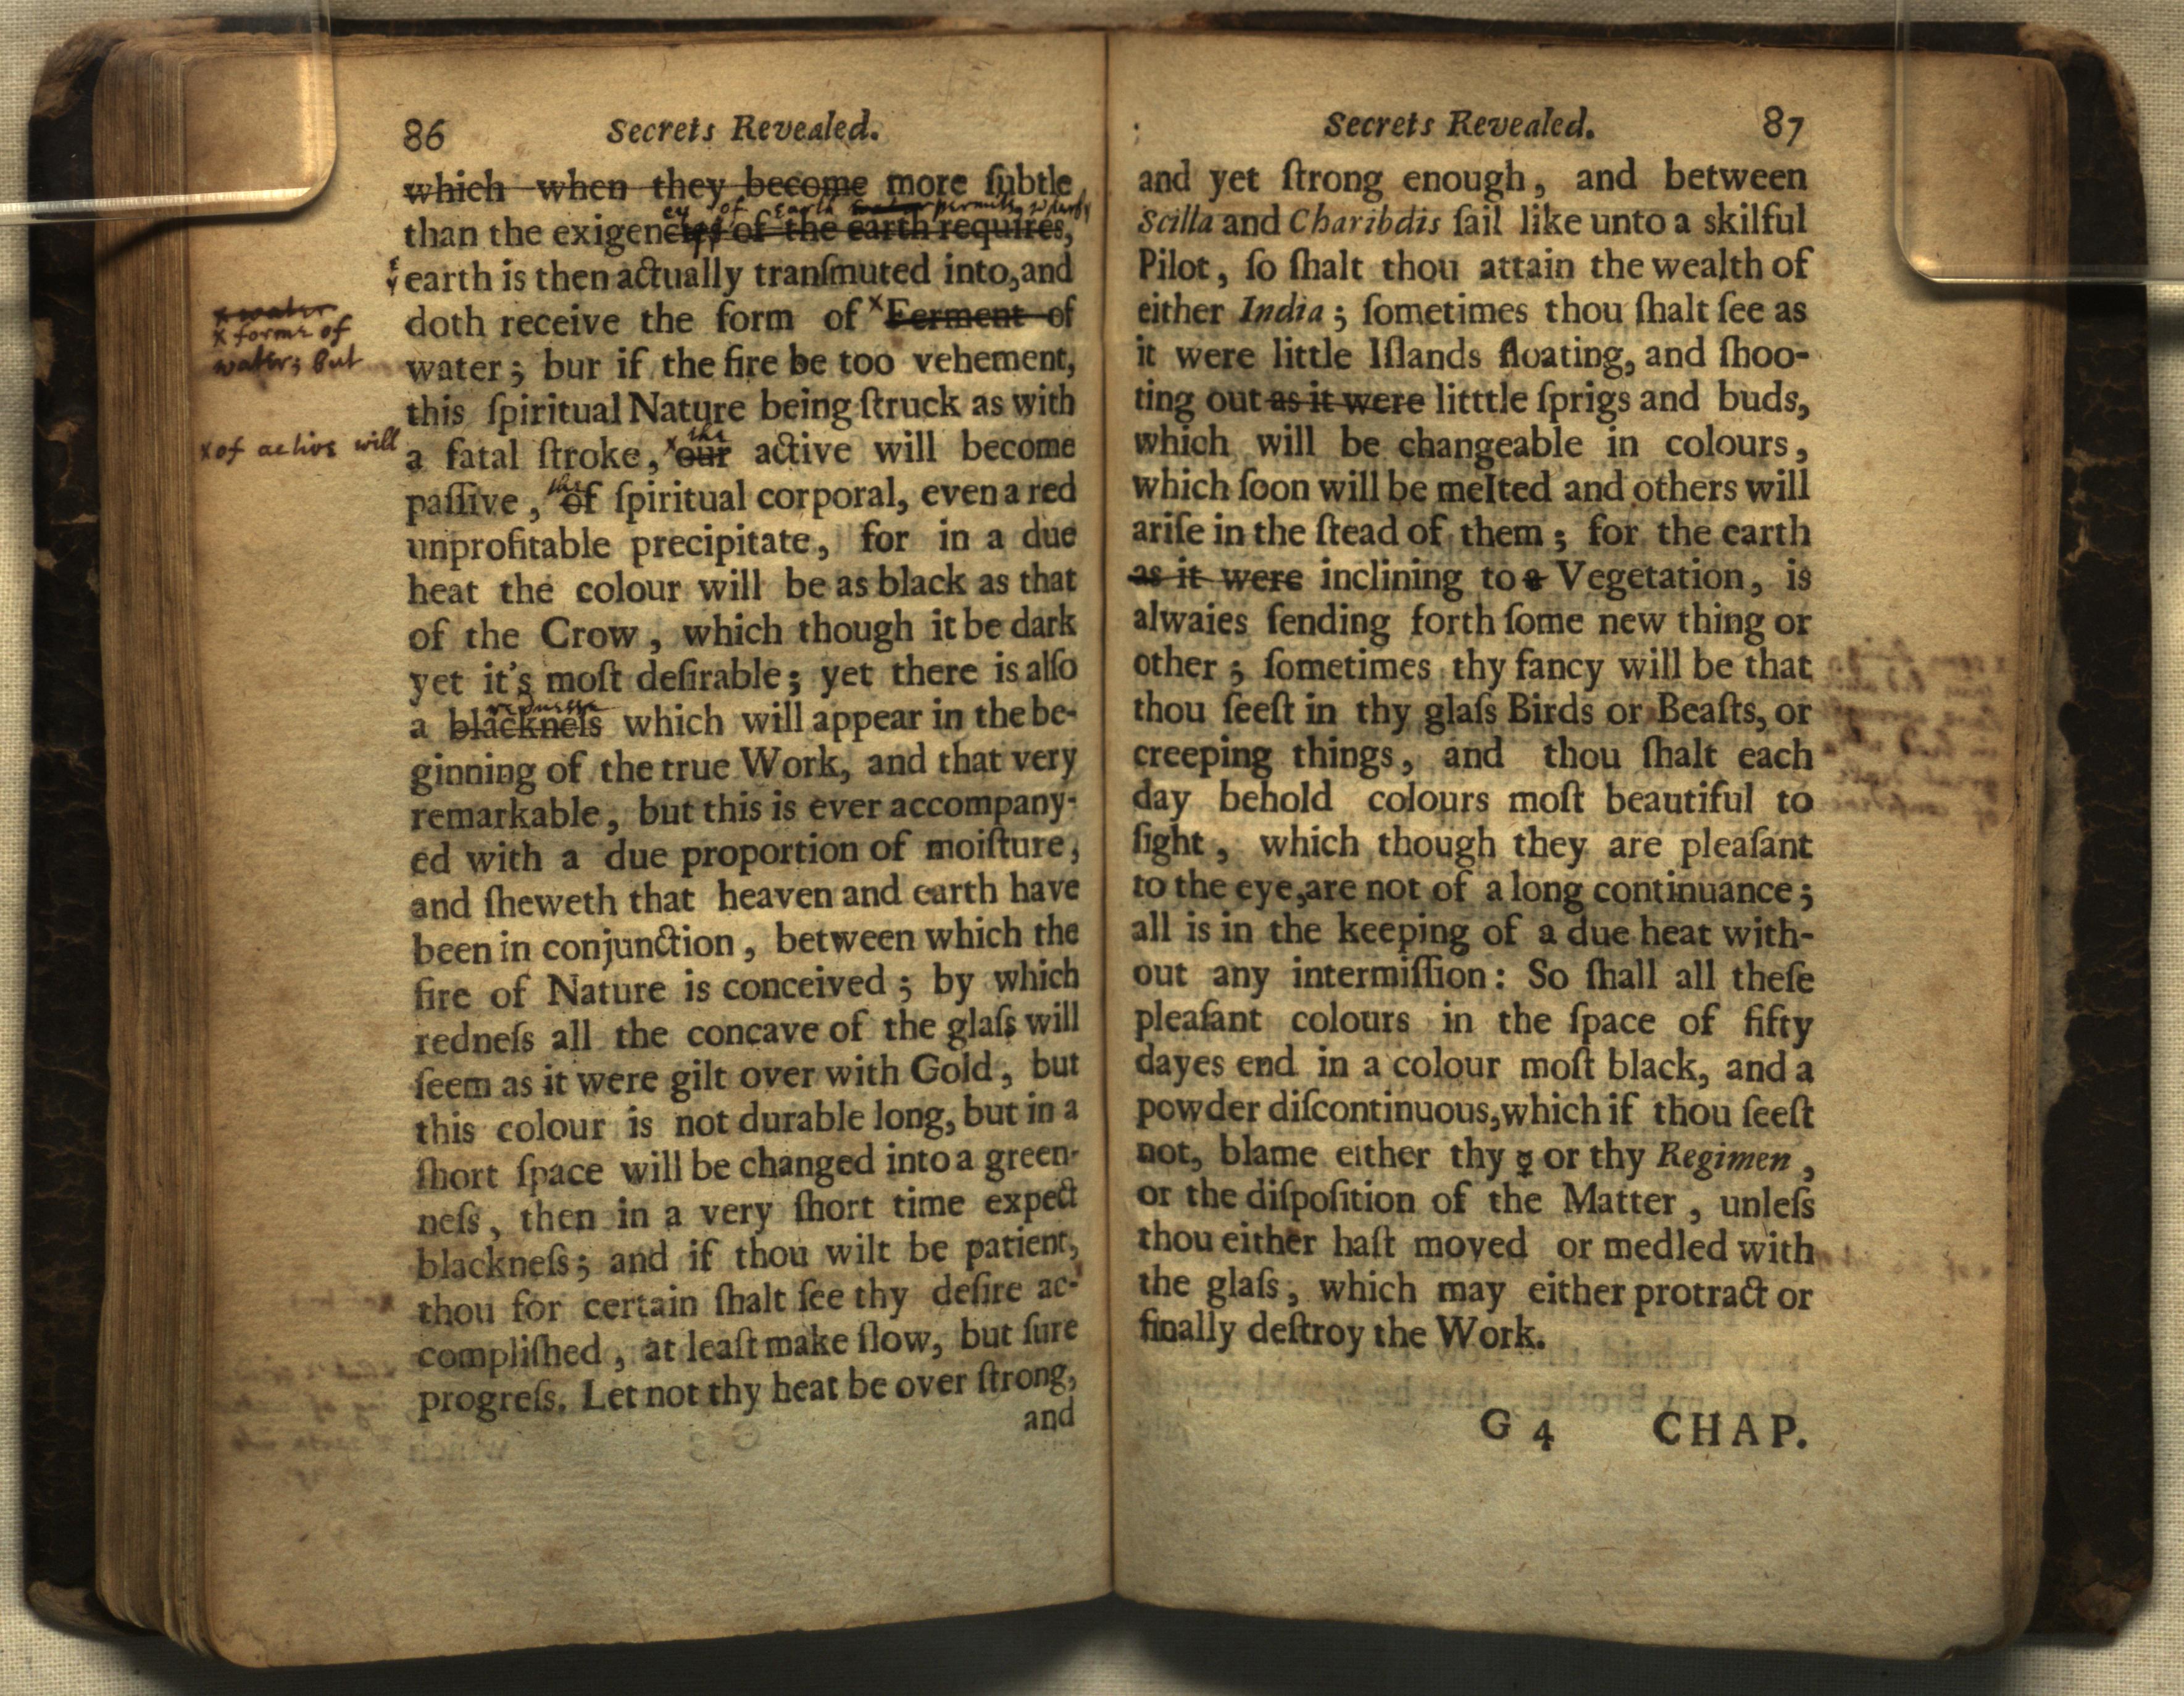 86 Secrets Revealed.
which when they become more ſubtle
than the exigencies of the earth requires,
ey of earth permits, wherby
earth is then actually tranſmuted into, and
doth receive the form of x Ferment of
x water
x forme of
water; but
water; bur if the fire be too vehement,
this ſpiritual Nature being ſtruck as with
x of active will
the
a fatal ſtroke, x our active will become
the
paſſive, of ſpiritual corporal, even a red
unprofitable precipitate, for in a due
heat the colour will be as black as that
of the Crow, which though it be dark
yet it's moſt deſirable; yet there is alſo
rednesse
a blackneſs which will appear in the be-
ginning of the true Work, and that very
remarkable, but this is ever accompany-
ed with a due proportion of moiſture,
and ſheweth that heaven and earth have
been in conjunction, between which the
fire of Nature is conceived; by which
redneſs all the concave of the glaſs will
ſeem as it were gilt over with Gold, but
this colour is not durable long, but in a
ſhort ſpace will be changed into a green-
neſs, then in a very ſhort time expect
blackneſs; and if thou wilt be patient,
thou for certain ſhalt ſee thy deſire ac-
compliſhed, at leaſt make ſlow, but ſure
progreſs. Let not thy heat be over ſtrong,
and
Secrets Revealed. 87
and yet ſtrong enough, and between
Scilla and Charibdis ſail like unto a skilful
Pilot, ſo ſhalt thou attain the wealth of
either India; ſometimes thou ſhalt ſee as
it were little Iſlands floating, and ſhoo-
ting out as it were litttle ſprigs and buds,
which will be changeable in colours,
which ſoon will be melted and others will
ariſe in the ſtead of them; for the earth
as it were inclining to a Vegetation, is
alwaies ſending forth ſome new thing or
other; ſometimes thy fancy will be that
thou ſeeſt in thy glaſs Birds or Beaſts, or
creeping things, and thou ſhalt each
day behold colours moſt beautiful to
ſight, which though they are pleaſant
to the eye, are not of a long continuance;
all is in the keeping of a due heat with-
out any intermiſſion: So ſhall all theſe
pleaſant colours in the ſpace of fifty
dayes end in a colour moſt black, and a
powder diſcontinuous, which if thou ſeeſt
not, blame either thy ☿ or thy Regimen,
or the diſpoſition of the Matter, unleſs
thou either haſt moved or medled with
the glaſs, which may either protract or
finally deſtroy the Work.
G 4 CHAP.